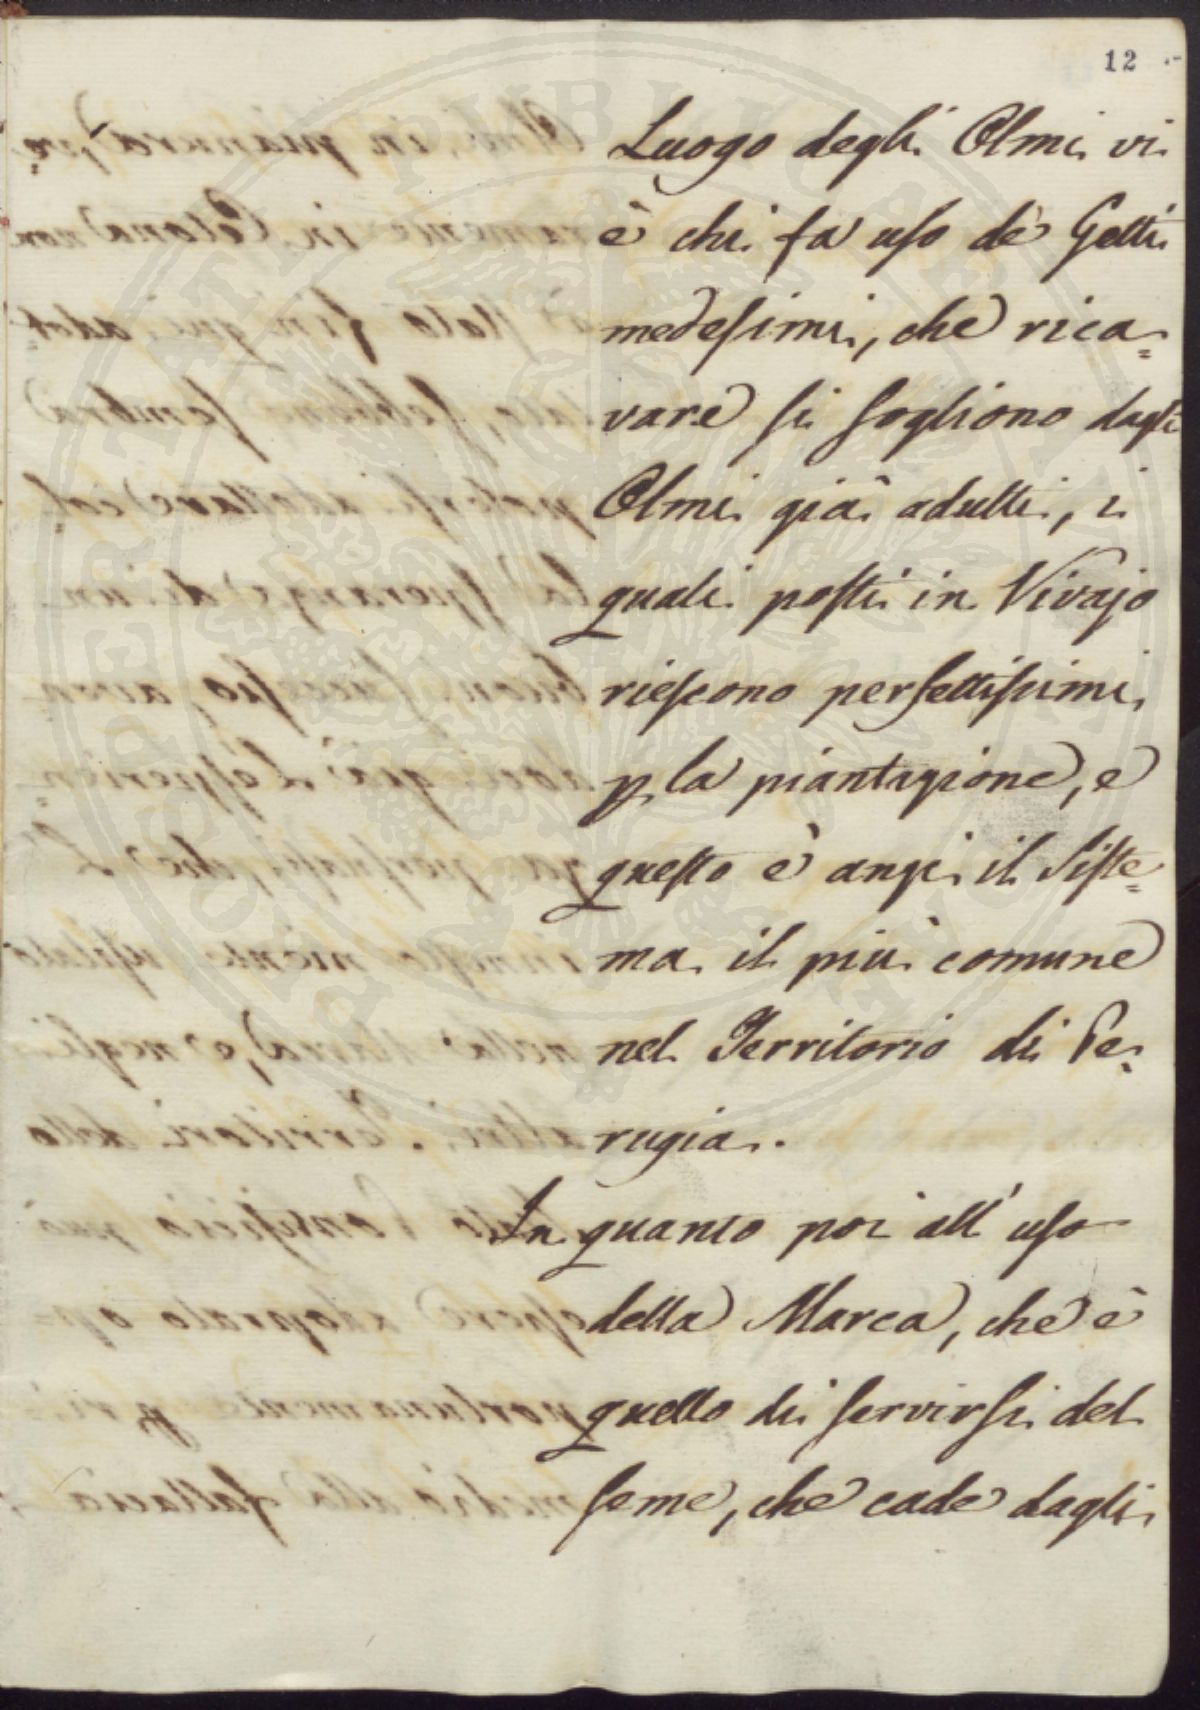 12
Luogo degli Olmi vi
è chi fa uso de' Getti
medesimi, che rica=
vare si sogliono dagli
Olmi già adulti, i
quali posti in Vivajo
riescono perfettissimi
p. la piantagione, e
questo è anzi il Siste=
ma il più comune
nel Territorio di Pe=
rugia.
In quanto poi all' uso
della Marca, che è
quello di servirsi del
seme, che cade dagli